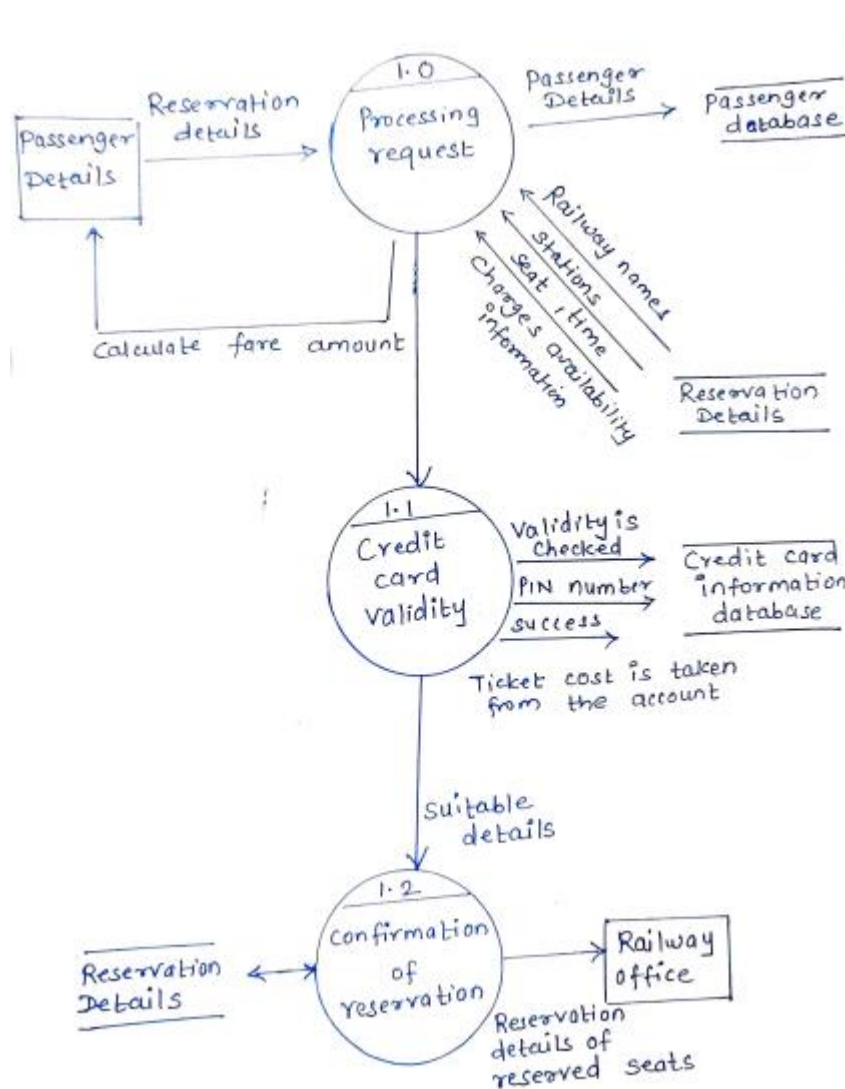 1.0
Processing
request
Reservation
details
Passenger
Details
Passenger
Details
Passenger
database
Railway names
Stations
seat, time
Charges availability
information
Reservation
Details
Calculate fare amount
1.1
Credit
card
validity
Validity is
checked
PIN number
success
Credit card
information
database
Ticket cost is taken
from the account
Suitable
details
1.2
Confirmation
of
reservation
Reservation
Details
Railway
office
Reservation
details of
reserved seats